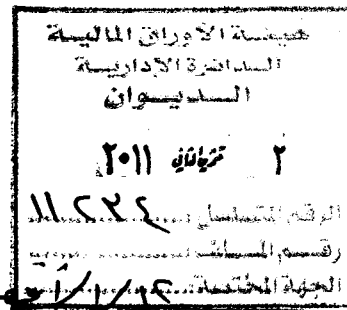 هيئة الأوراق المالية
الدائرة الإدارية
الديوان
٢ تشرين ثاني ٢٠١١
الرقم المتسلسل ١١٢٣٤
رقم الملف
الجهة المختصة